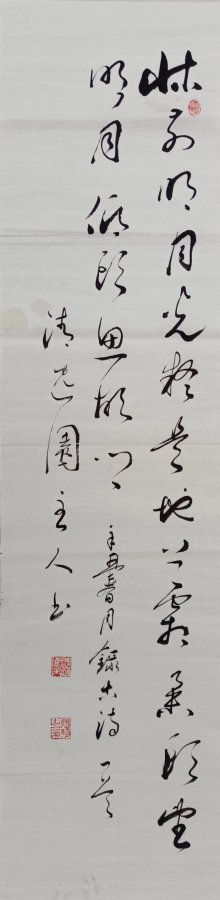 床前明月光疑是地上霜舉頭望
明月低頭思故鄉
辛丑春月錄古詩一首
清園主人书